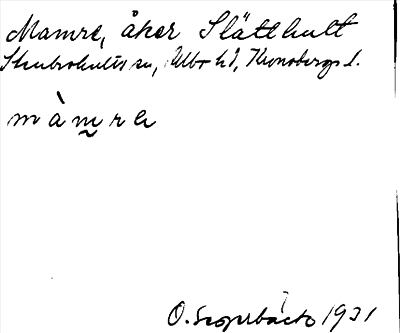 Mamre, åker Slätthult
Stenbrohults sn, Allbo hd, Kronobergs l.
màm̰rе
O. Segerbäck 1931